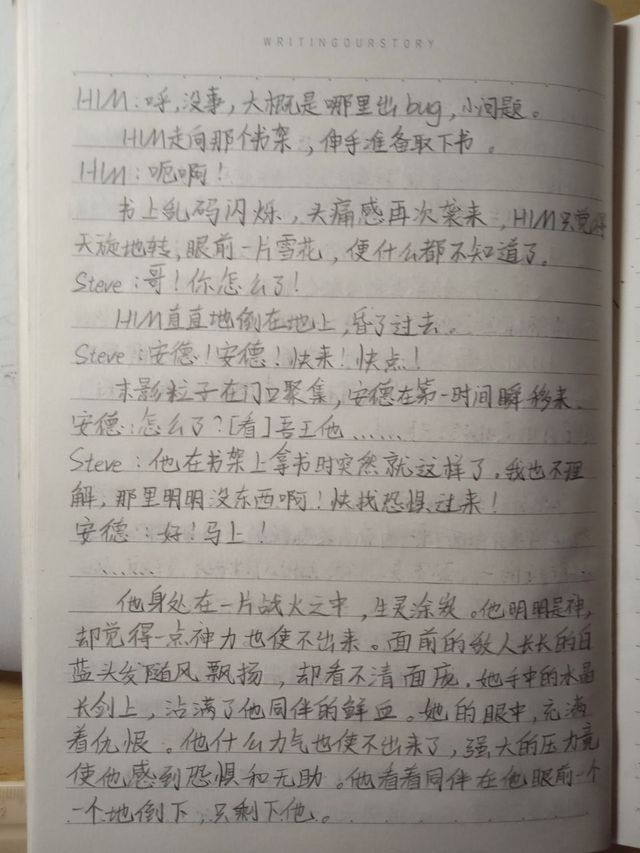 WRITINGOURSTORY
HIM：呼，没事，大概是哪里出bug，小问题。
HIM走向那个书架，伸手准备取下书。
HIM：呃啊！
书上乱码闪烁，头痛感再次袭来，HIM只觉得
天旋地转，眼前一片雪花，便什么都不知道了。
Steve：哥！你怎么了！
HIM直直地倒在地上，昏了过去。
Steve：安德！安德！快来！快点！
末影粒子在门口聚集，安德在第一时间瞬移来.
安德：怎么了？[看]吾王他……
Steve：他在书架上拿书时突然就这样了，我也不理
解，那里明明没东西啊！快找恐惧过来！
安德：好！马上！
……
他身处在一片战火之中，生灵涂炭。他明明是神，
却觉得一点神力也使不出来。面前的敌人长长的白
蓝头发随风飘扬，却看不清面庞，她手中的水晶
长剑上，沾满了他同伴的鲜血。她的眼中，充满
着仇恨。他什么力气也使不出来了，强大的压力竟
使他感到恐惧和无助。他看着同伴在他眼前一个
一个地倒下，只剩下他。